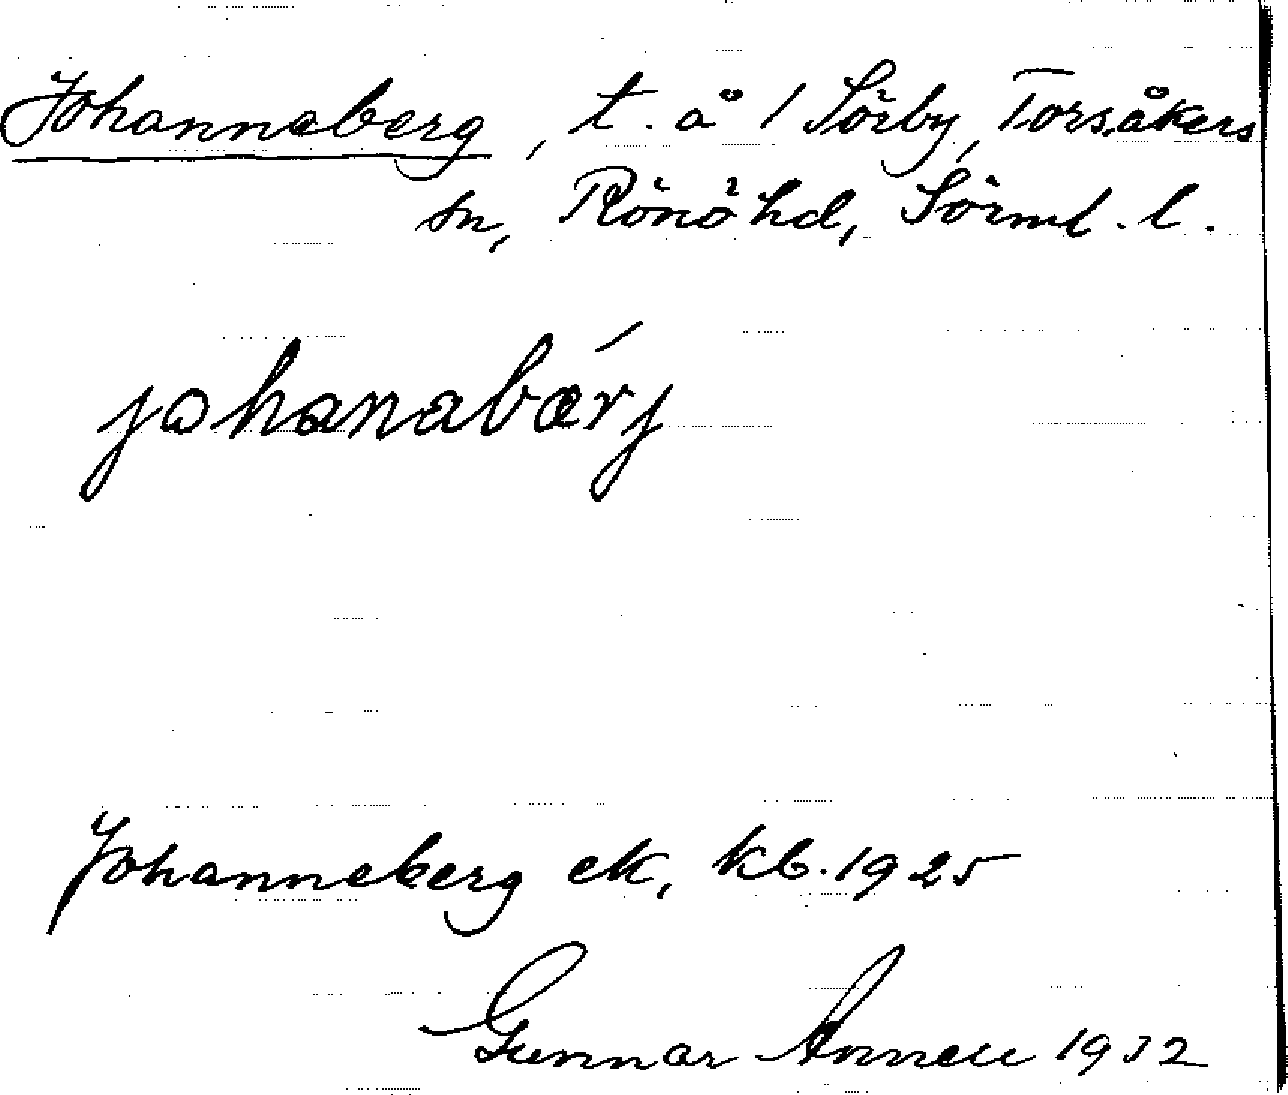 Johanneberg, t. å 1 Sörby, Torsåkers
sn, Rönö hd, Sörml. l.
johanabærj
Johanneberg ek, kb. 1925
Gunnar 1932